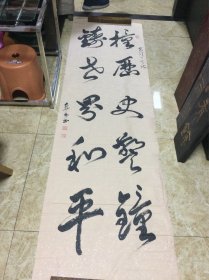 撞历史警钟
铸世界和平